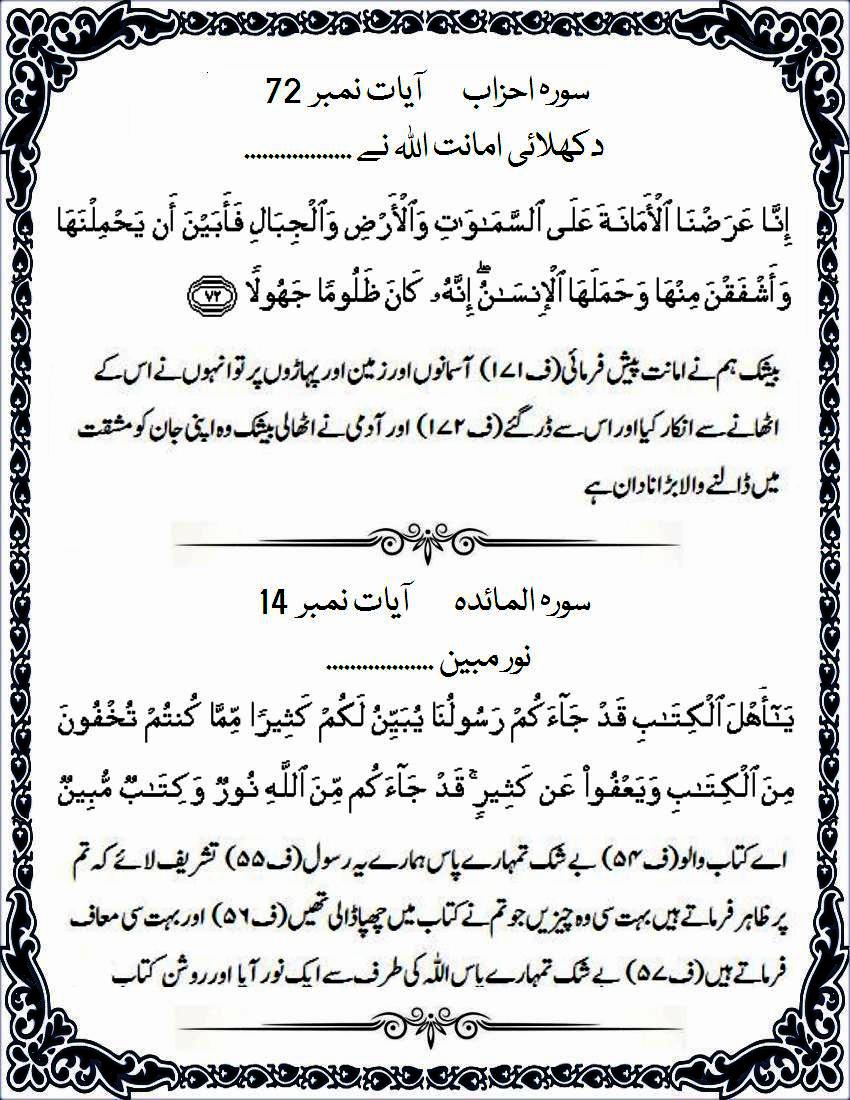 سورہ احزاب آیات نمبر 72
دکھلائی امانت اللہ نے ...................
إِنَّا عَرَضْنَا ٱلْأَمَانَةَ عَلَى ٱلسَّمَـٰوَٰتِ وَٱلْأَرْضِ وَٱلْجِبَالِ فَأَبَيْنَ أَن يَحْمِلْنَهَا
وَأَشْفَقْنَ مِنْهَا وَحَمَلَهَا ٱلْإِنسَـٰنُ ۖ إِنَّهُۥ كَانَ ظَلُومًا جَهُولًا ﴿٧٢﴾
بیشک ہم نے امانت پیش فرمائی (ف۱۷۱) آسمانوں اور زمین اور پہاڑوں پر تو انہوں نے اس کے
اٹھانے سے انکار کیا اور اس سے ڈر گئے (ف۱۷۲) اور آدمی نے اٹھالی بیشک وہ اپنی جان کو مشقت
میں ڈالنے والا بڑا نادان ہے
سورہ المائدہ آیات نمبر 14
نور مبین ..................
يَـٰٓأَهْلَ ٱلْكِتَـٰبِ قَدْ جَآءَكُمْ رَسُولُنَا يُبَيِّنُ لَكُمْ كَثِيرًا مِّمَّا كُنتُمْ تُخْفُونَ
مِنَ ٱلْكِتَـٰبِ وَيَعْفُوا۟ عَن كَثِيرٍ ۚ قَدْ جَآءَكُم مِّنَ ٱللَّهِ نُورٌ وَكِتَـٰبٌ مُّبِينٌ
اے کتاب والو (ف۵۴) بے شک تمہارے پاس ہمارے یہ رسول (ف۵۵) تشریف لائے کہ تم
پر ظاہر فرماتے ہیں بہت سی وہ چیزیں جو تم نے کتاب میں چھپا ڈالی تھیں (ف۵۶) اور بہت سی معاف
فرماتے ہیں (ف۵۷) بے شک تمہارے پاس اللہ کی طرف سے ایک نور آیا اور روشن کتاب